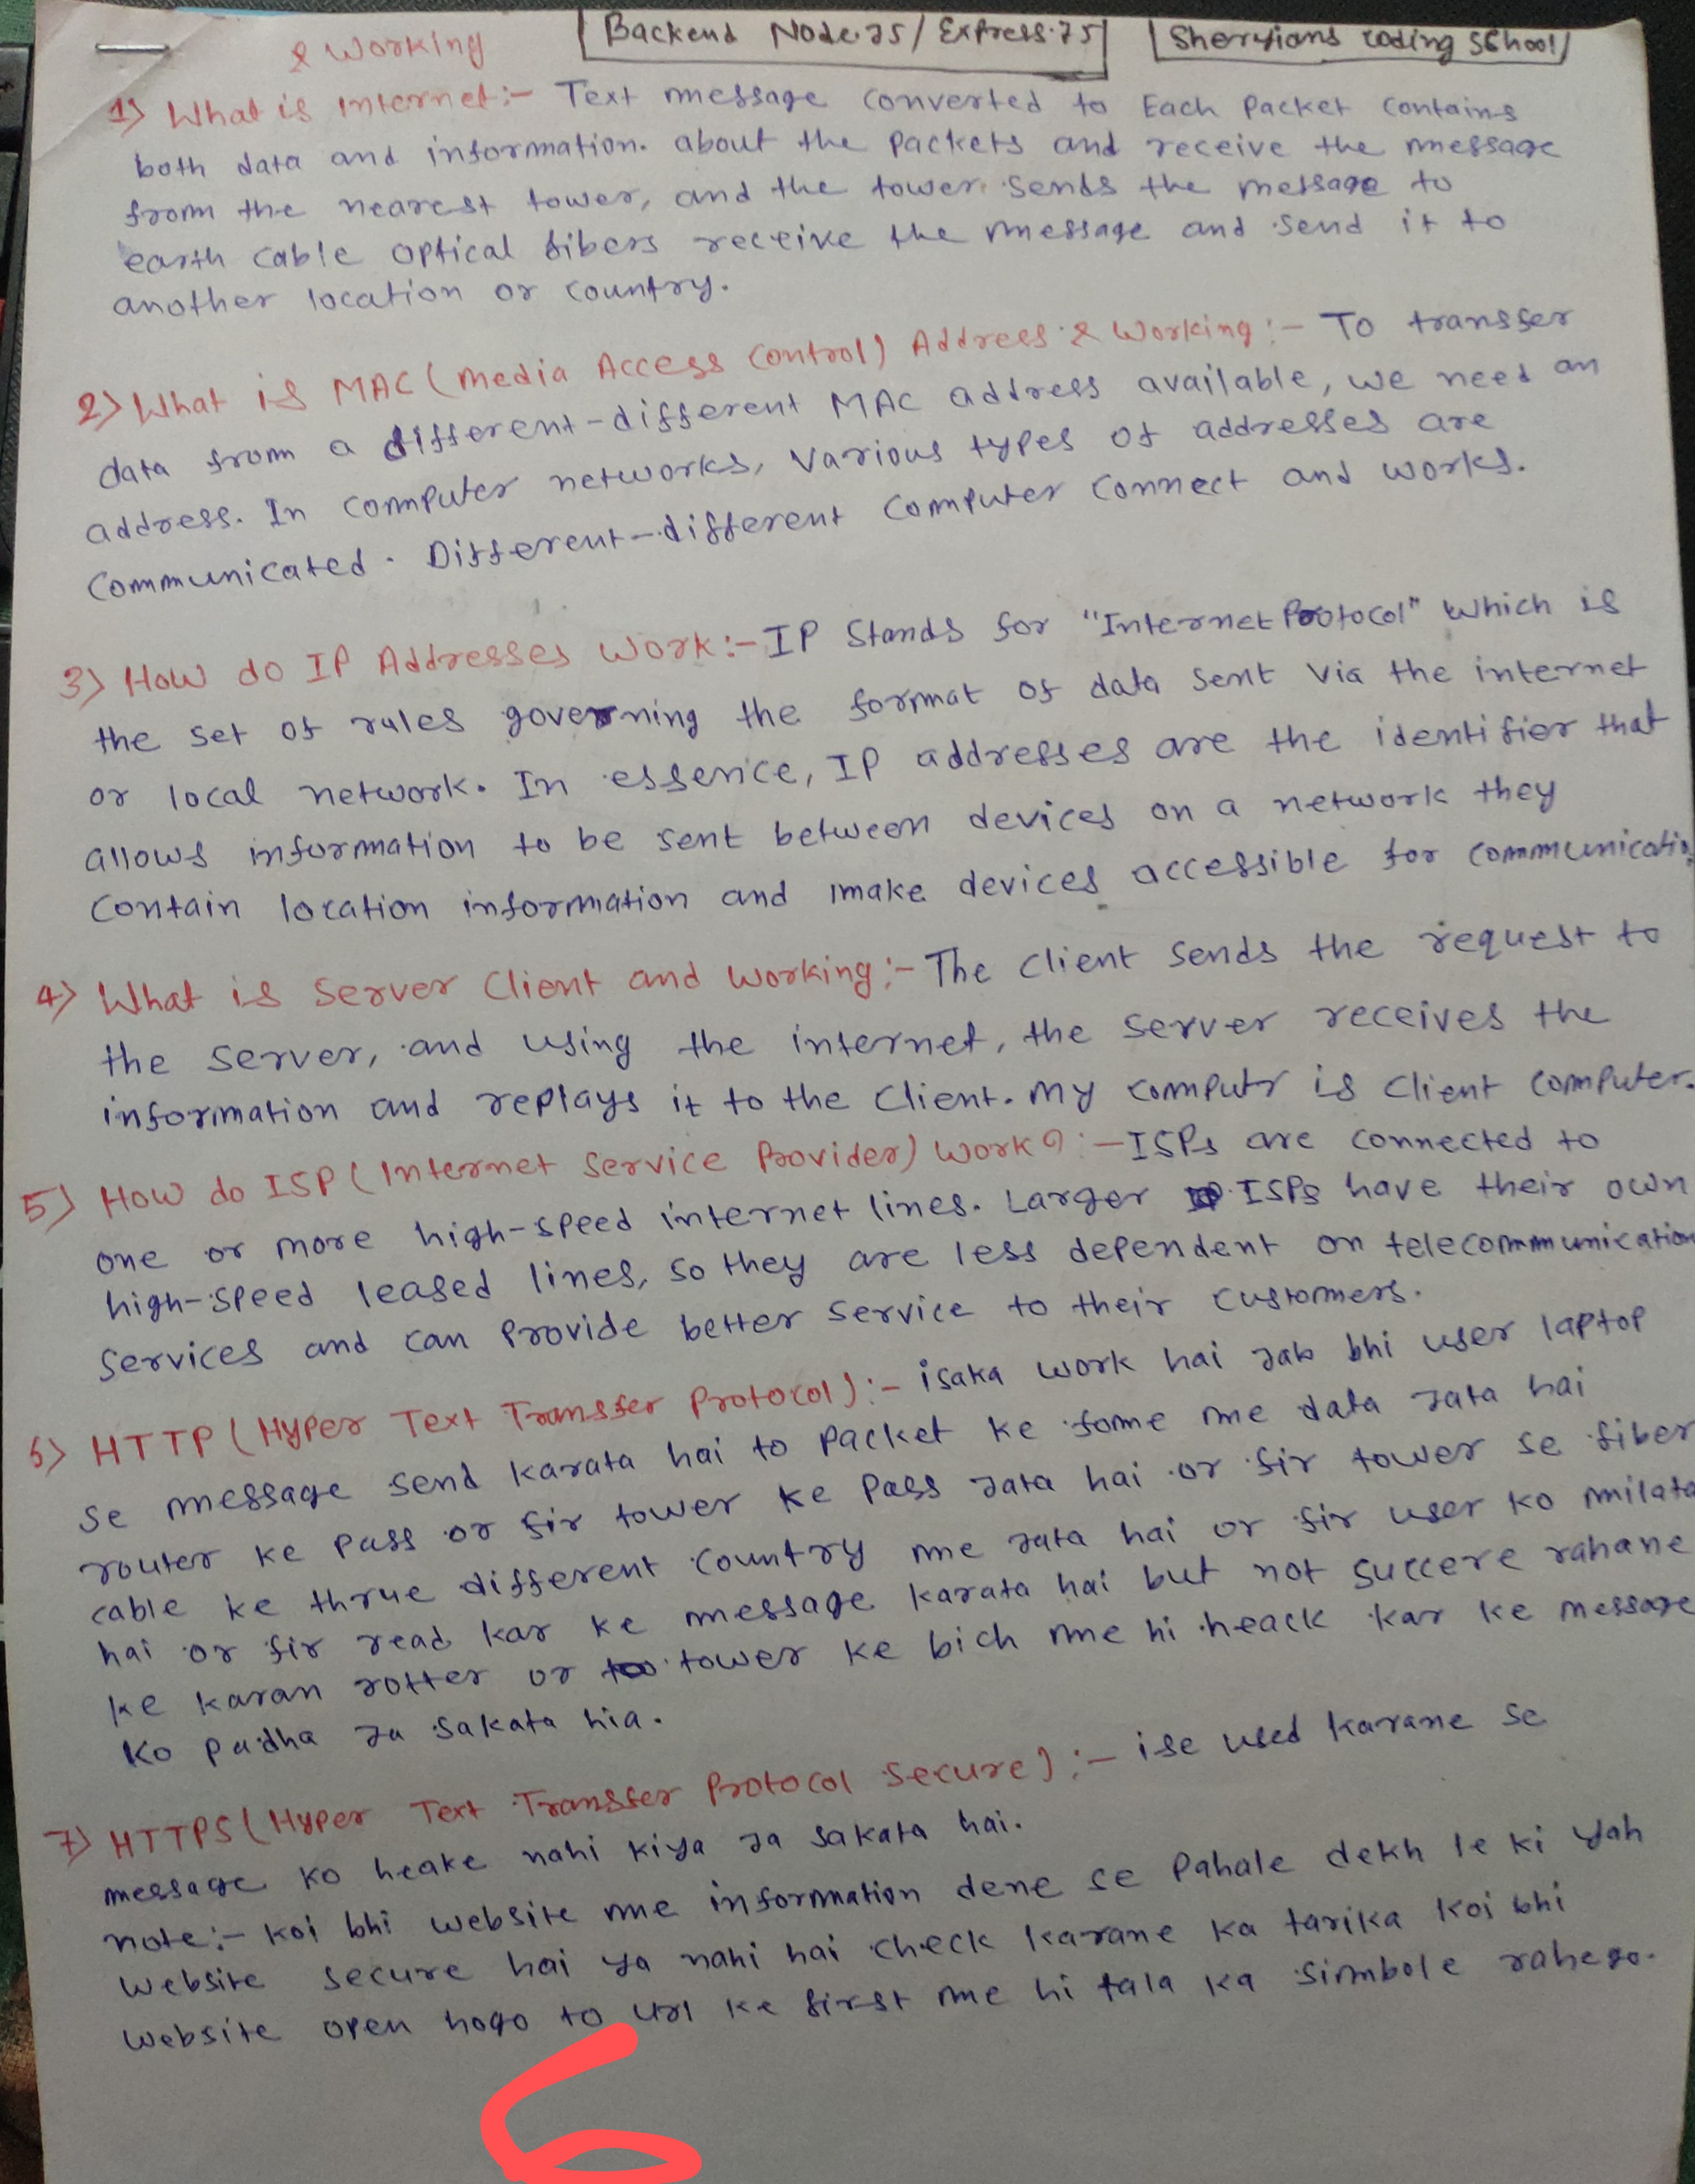 Backend Node.JS/Express.JS
Sheryians coding School
& Working
1) What is internet:- Text message converted to Each packet contains
both data and information. about the packets and receive the message
from the nearest tower, and the tower sends the message to
earth cable optical fibers receive the message and send it to
another location or country.
2) What is MAC (Media Access Control) Address & Working:- To transfer
data from a different-different MAC address available, we need an
address. In computer networks, various types of addresses are
communicated. Different-different computer connect and works.
3) How do IP Addresses Work:- IP Stands for "Internet Protocol" which is
the set of rules governing the format of data sent via the internet
or local network. In essence, IP addresses are the identifier that
allows information to be sent between devices on a network they
contain location information and make devices accessible for communicatio
4) What is Server Client and working:- The client sends the request to
the server, and using the internet, the server receives the
information and replays it to the client. my computr is client computer.
5) How do ISP (Internet Service Provider) Work?:- ISPs are connected to
one or more high-speed internet lines. Larger ISPs have their own
high-speed leased lines, so they are less dependent on telecommunication
services and can provide better service to their customers.
6) HTTP (Hyper Text Transfer Protocol):- isaka work hai jab bhi user laptop
se message send karata hai to packet ke fome me data jata hai
router ke pass or fir tower ke pass jata hai or fir tower se fiber
cable ke thrue different country me jata hai or fir user ko milata
hai or fir read kar ke message karata hai but not succere rahane
ke karan rotter or tower ke bich me hi heack kar ke message
ko padha ja sakata hia.
7) HTTPS (Hyper Text Transfer Protocol Secure):- ise used karane se
message ko heake nahi kiya ja sakata hai.
note:- koi bhi website me information dene se pahale dekh le ki yah
website secure hai ya nahi hai check karane ka tarika koi bhi
website open hogo to url ke first me hi tala ka simbole rahego.